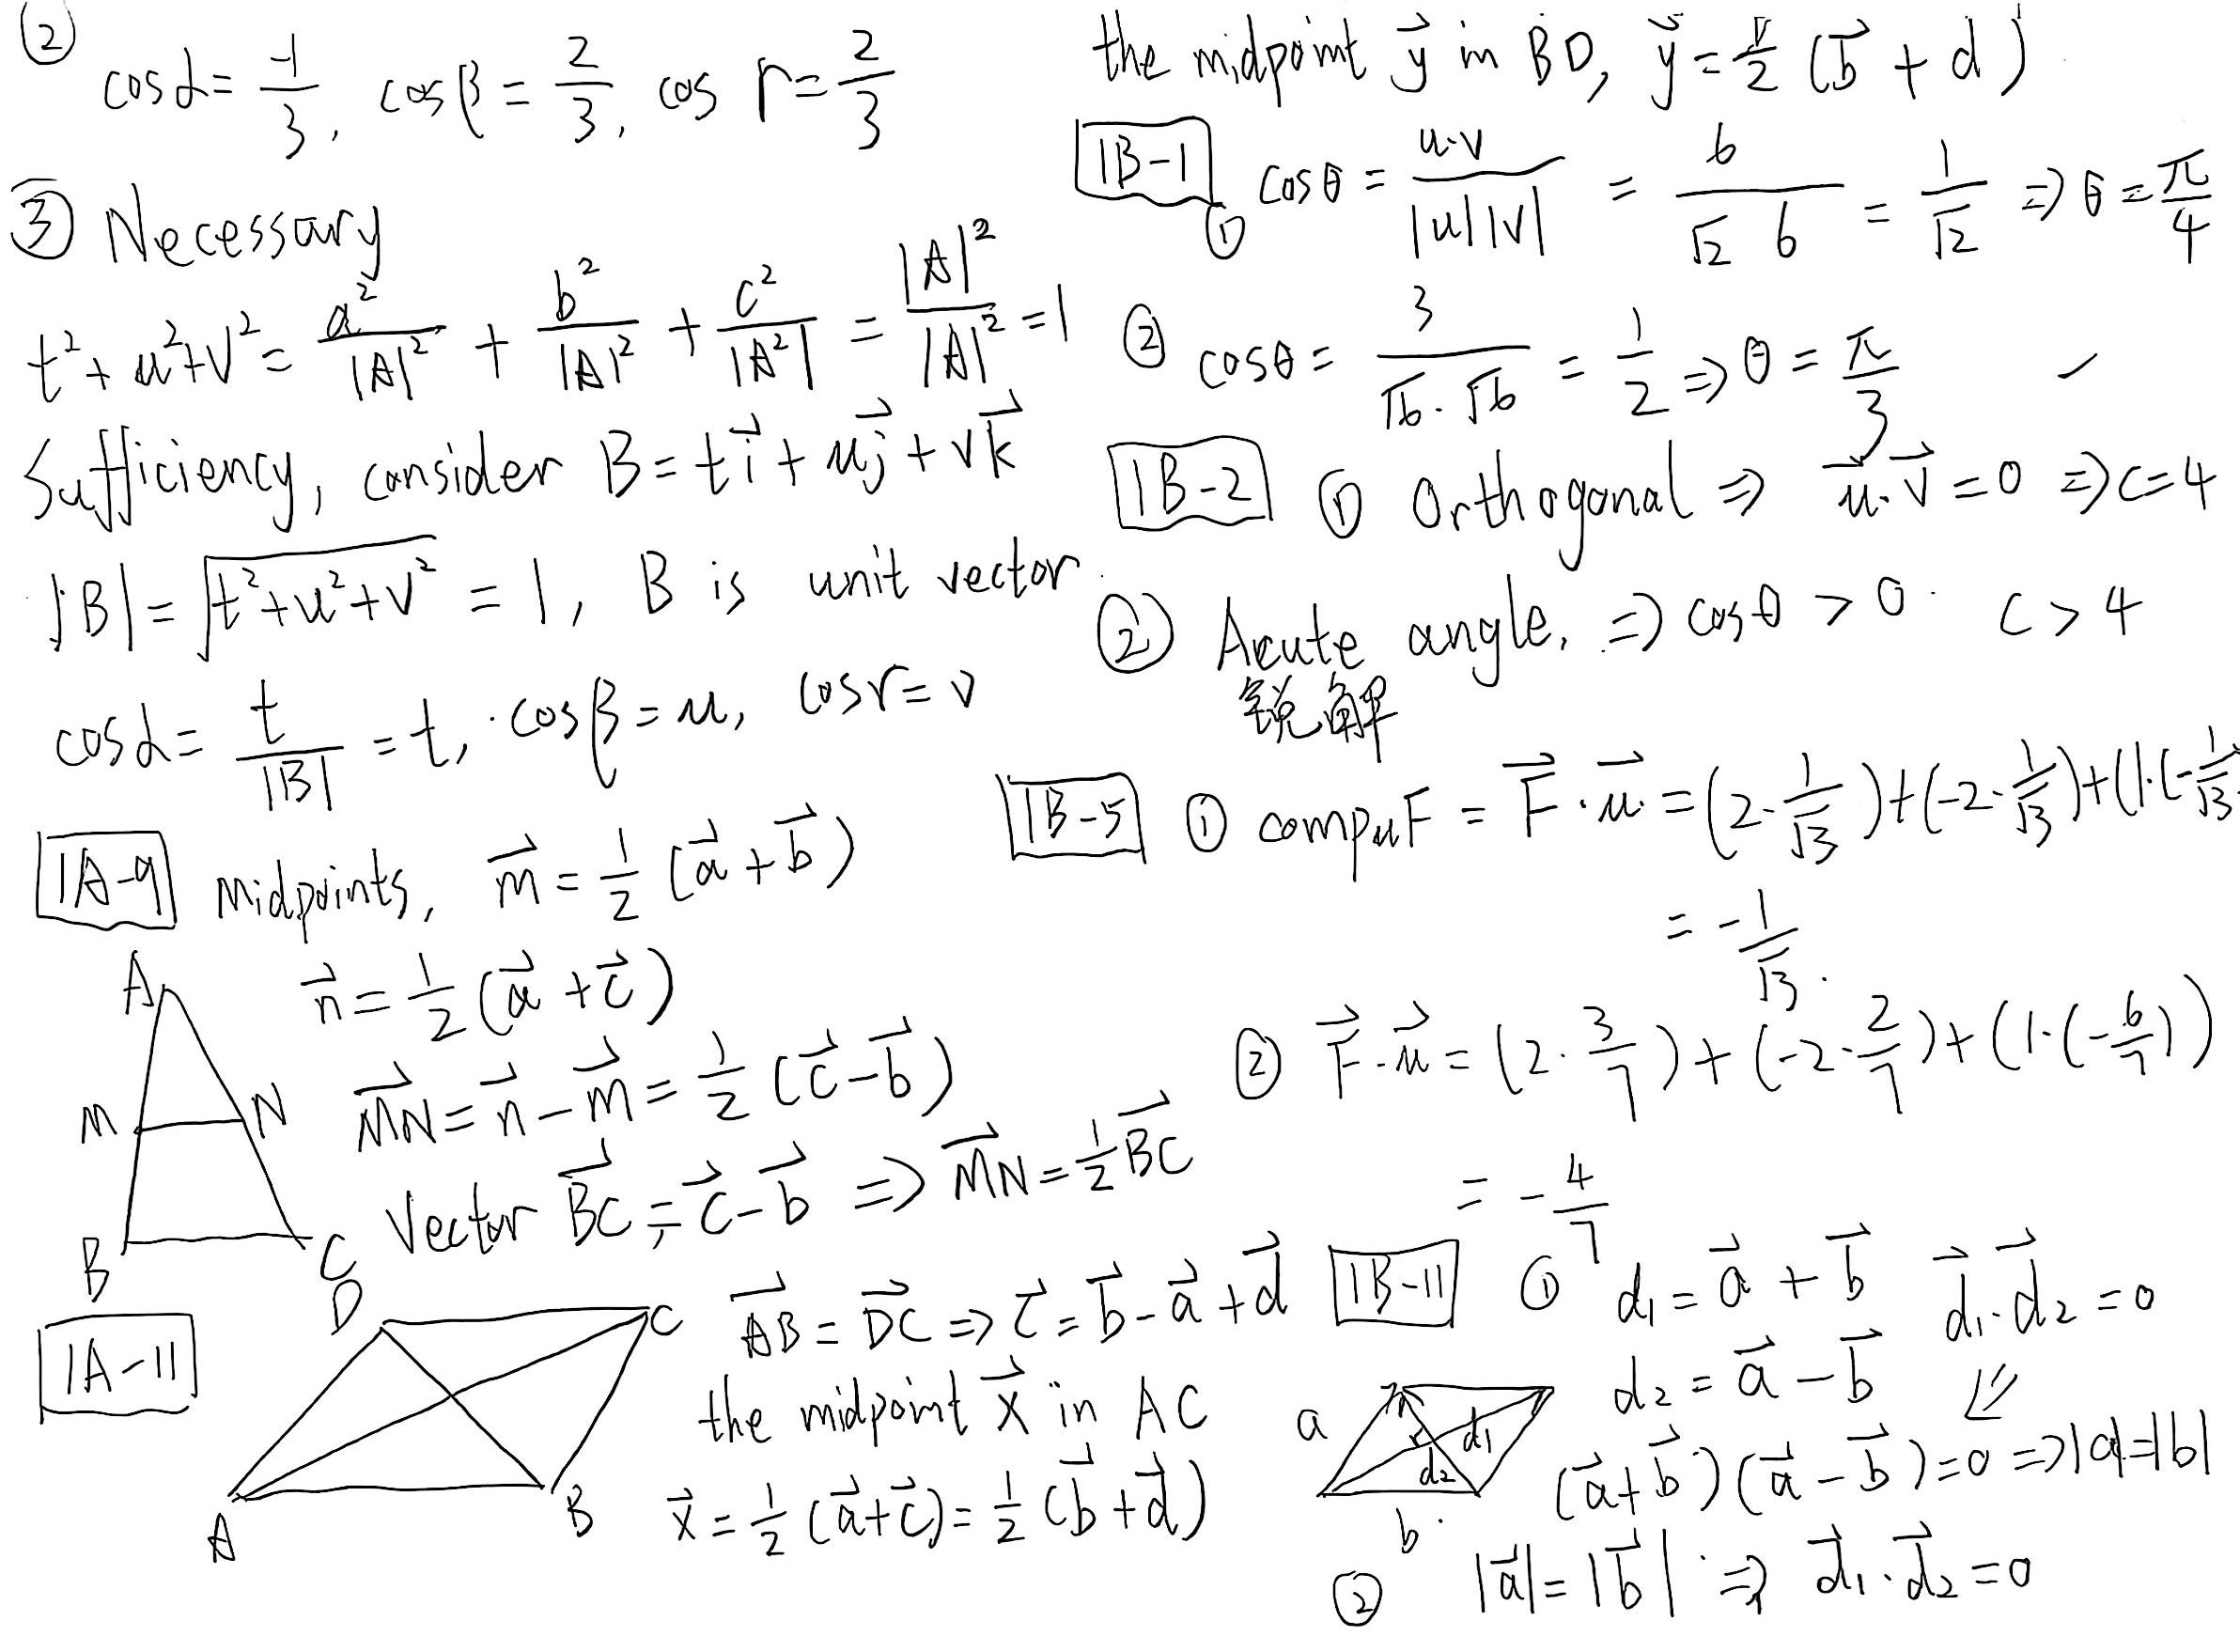 ②
cosα = -1/3, cosβ = 2/3, cos r = 2/3
③ Necessary
t² + u² + v² = a²/|A|² + b²/|A|² + c²/|A²| = |A|²/|A|² = 1
Sufficiency, consider B = t\vec{i} + u\vec{j} + v\vec{k}
|B| = √(t² + u² + v²) = 1, B is unit vector.
cosα = t/|B| = t, cosβ = u, cosr = v
1A-9 midpoints, \vec{m} = 1/2 (\vec{a} + \vec{b})
\vec{n} = 1/2 (\vec{a} + \vec{c})
\vec{MN} = \vec{n} - \vec{m} = 1/2 (\vec{c} - \vec{b})
Vector \vec{BC} = \vec{c} - \vec{b} ⇒ \vec{MN} = 1/2 \vec{BC}
A
M N
B C
1A-11
\vec{AB} = \vec{DC} ⇒ \vec{c} = \vec{b} - \vec{a} + \vec{d}
the midpoint \vec{x} in AC
\vec{x} = 1/2 (\vec{a} + \vec{c}) = 1/2 (\vec{b} + \vec{d})
D C
A B
the midpoint \vec{y} in BD, \vec{y} = 1/2 (\vec{b} + d)
1B-1
① cosθ = u·v/|u||v| = 6/(√2 6) = 1/√2 ⇒ θ = π/4
② cosθ = 3/(√6·√6) = 1/2 ⇒ θ = π/3
1B-2 ① Orthogonal ⇒ \vec{u}·\vec{v} = 0 ⇒ c = 4
② Acute angle, ⇒ cosθ > 0. c > 4
锐解
1B-5 ① compuF = \vec{F}·\vec{u} = (2·1/√3) + (-2·1/√3) + (1·(-1/√3
= -1/√3.
② \vec{F}·\vec{u} = (2·3/7) + (-2·2/7) + (1·(-6/7))
= -4/7
1B-11 ① d₁ = \vec{a} + \vec{b} \vec{d}₁·\vec{d}₂ = 0
d₂ = \vec{a} - \vec{b} ⇙
(\vec{a} + \vec{b})(\vec{a} - \vec{b}) = 0 ⇒ |a| = |b|
a d₁
d₂
b
② |\vec{a}| = |\vec{b}| ⇒ \vec{d}₁·\vec{d}₂ = 0